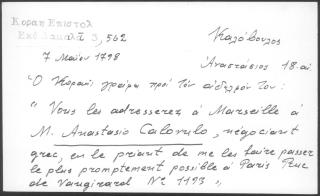 Κοραη Επιστολ
3,562
Καλόβουλος
7 Μαΐου 1798
Ἀναστάσιος 18 αἰ
Ὁ Κοραῆς γράφει πρὸς τὸν
" Vous les adresserez à Marseille à
M. Anastasio Calovulo, négociant
grec, en le priant de me les faire passer
le plus promptement possible à Paris Rue
de Vaugirard Nº 1193 "